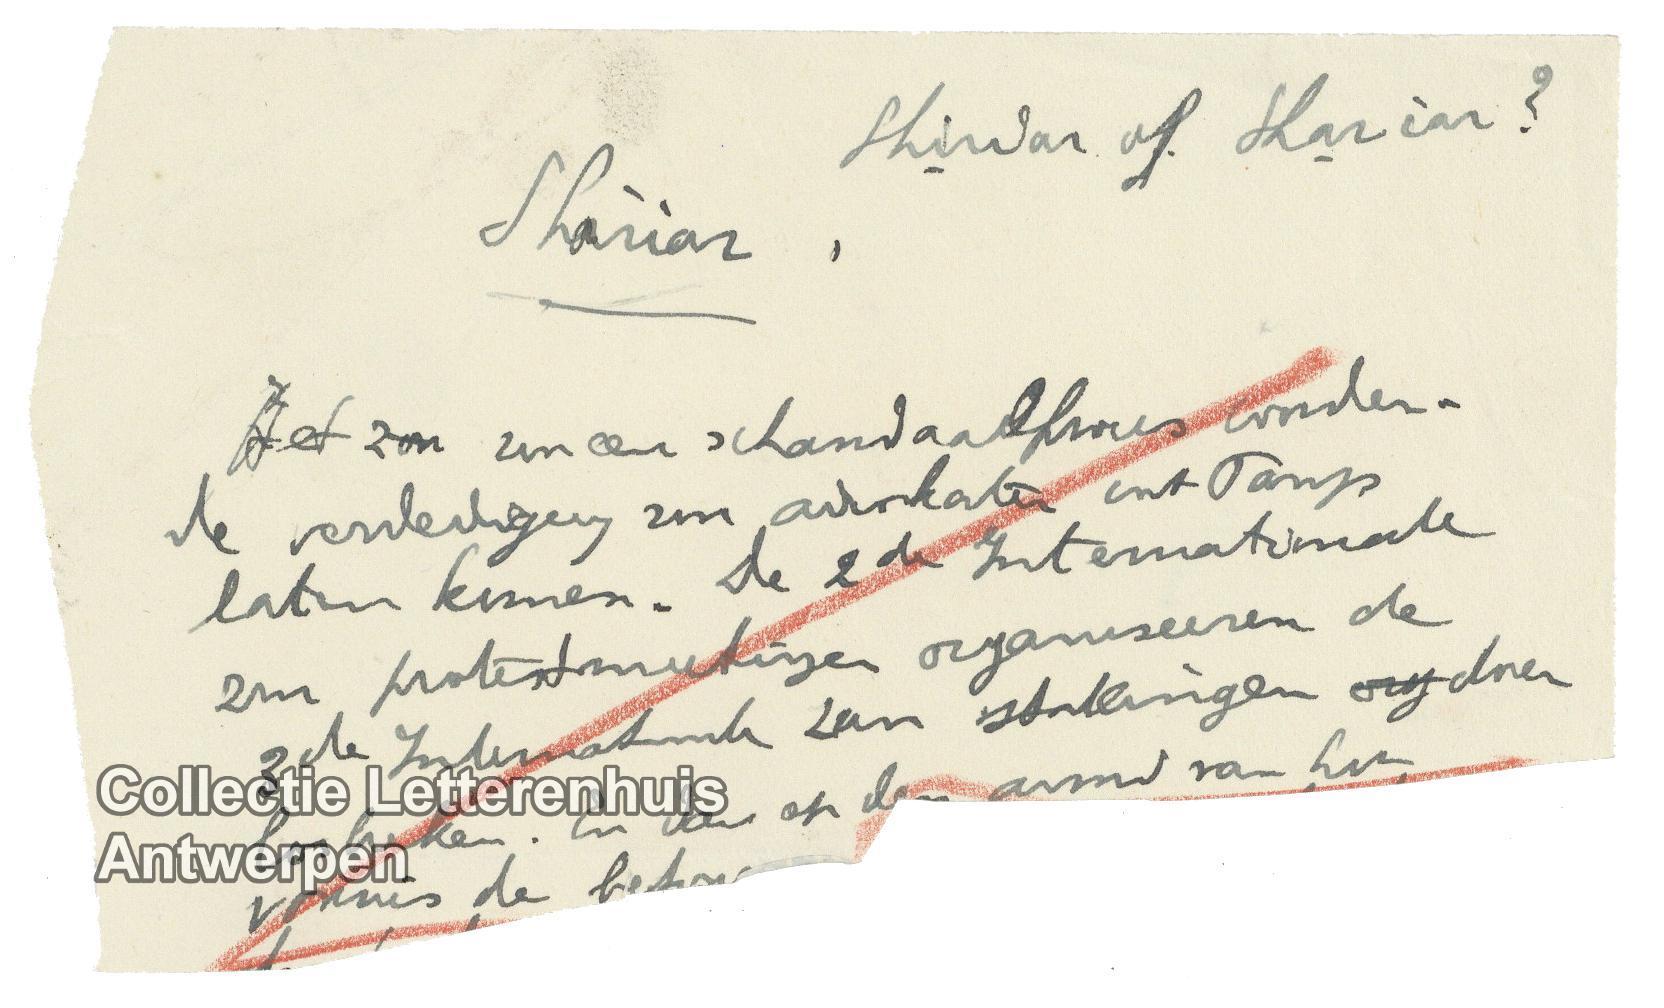 Shirdar of Shariar?
Shariar,
Het zou een schandaalproces worden.
de verdediging zou advokaten uit Parijs
laten komen. De 2de Internationale
zou protestmeetingen organiseeren de
3de Internationale zou stakingen org doen
In den op den avond van het
vonnis de
Collectie Letterenhuis
Antwerpen